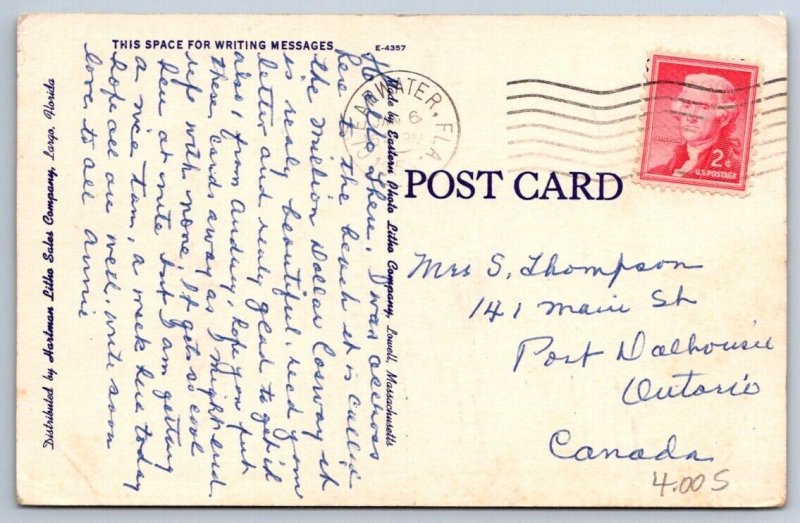 THIS SPACE FOR WRITING MESSAGES
E-4357
Hello There. I was accross
here to the beach it is called
the million Dollar Casway it
is realy beautiful. recd your
letter and realy glad to get it
also, from Audrey, hope you put
these cards away as I might end
up with none. It gets so cool
hear at nite but I am getting
a nice tam, a week here today
hope all are well, write soon
love to all Annie
Distributed by Hartman Litho Sales Company, Largo, Florida
Made by Eastern Photo Litho Company, Lowell, Massachusetts
CLEARWATER, FLA.
6
2¢
U.S. POSTAGE
POST CARD
Mrs S. Thompson
141 Main St
Port Dalhousie
Ontario
Canada
4.00 S